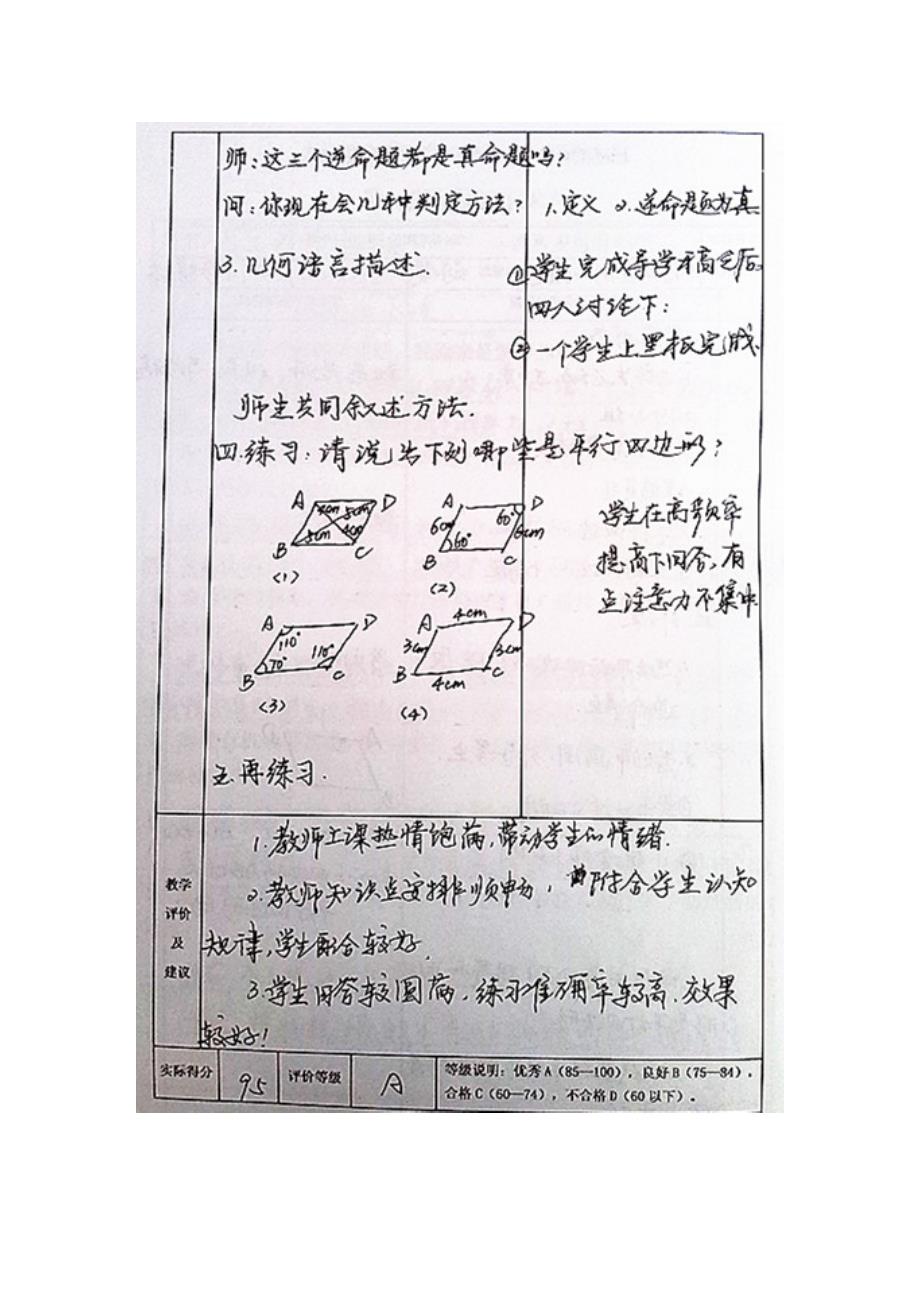 师：这三个逆命题都是真命题吗？
问：你现在会几种判定方法？ 1.定义 2.逆命题为真
3.几何语言描述. ①学生完成导学稿之后
四人讨论下：
②一个学生上黑板完成
师生共同叙述方法.
四.练习：请说出下列哪些是平行四边形？
A 4cm 5cm D
5cm 4cm
B C
(1)
A 60° D
6cm 6cm
B 60° C
(2)
学生在高频率
提高下回答，有
点注意力不集中
A D
110° 110°
B 70° C
(3)
A 4cm D
3cm 3cm
B 4cm C
(4)
五.再练习.
教学
评价
及
建议
1.教师上课热情饱满，带动学生的情绪.
2.教师知识点安排顺畅，附合学生认知
规律，学生配合较好.
3.学生回答较圆满，练习准确率较高.效果
较好！
实际得分 95 评价等级 A 等级说明：优秀A（85—100），良好B（75—84），
合格C（60—74），不合格D（60以下）。